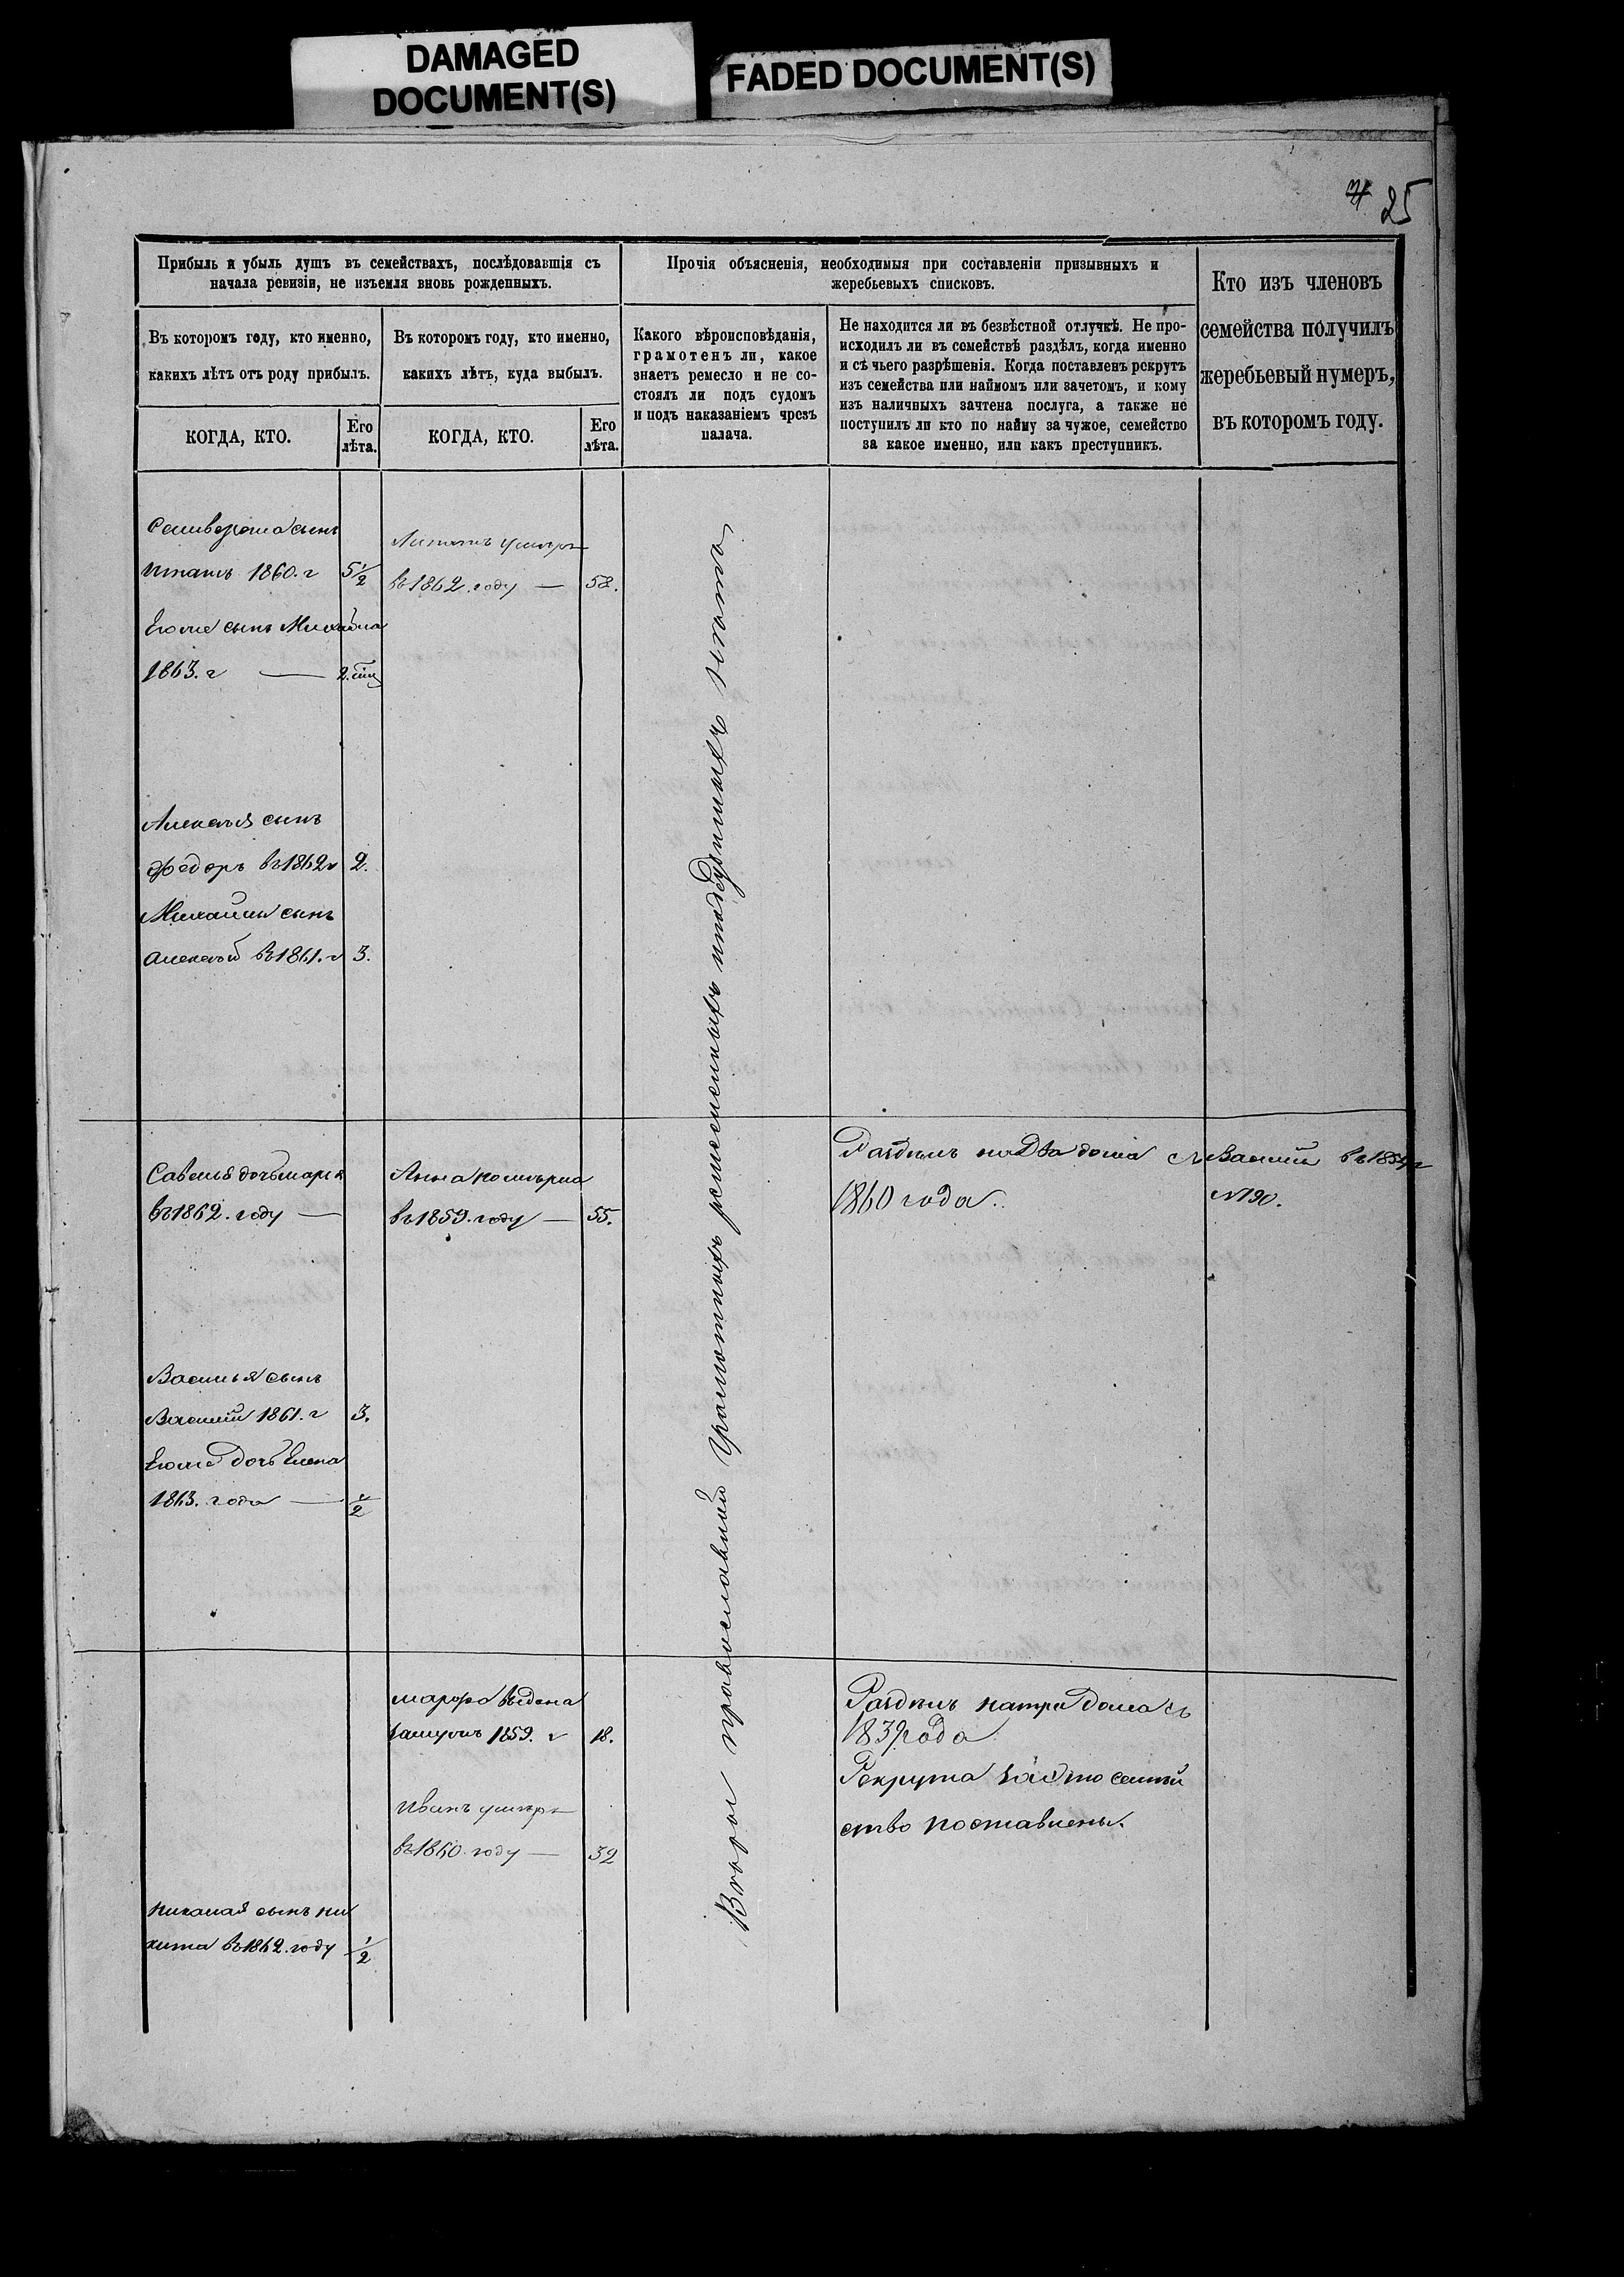 DAMAGED
DOCUMENT(S)
FADED DOCUMENT(S)
25
Прибыль и убыль душъ въ семействахъ, послѣдовавшія съ
начала ревизіи, не изъемля вновь рожденныхъ.
Прочія объясненія, необходимыя при составленіи призывныхъ и
жеребьевыхъ списковъ.
Кто изъ членовъ
семейства получилъ
жеребьевый нумеръ,
въ которомъ году.
Въ которомъ году, кто именно,
какихъ лѣтъ отъ роду прибылъ.
Въ которомъ году, кто именно,
какихъ лѣтъ, куда выбылъ.
Какого вѣроисповѣданія,
грамотенъ ли, какое
знаетъ ремесло и не со-
стоялъ ли подъ судомъ
и подъ наказаніемъ чрезъ
палача.
Не находится ли въ безвѣстной отлучкѣ. Не про-
исходилъ ли въ семействѣ раздѣлъ, когда именно
и съ чьего разрѣшенія. Когда поставленъ рекрутъ
изъ семейства или наймомъ или зачетомъ, и кому
изъ наличныхъ зачтена послуга, а также не
поступилъ ли кто по найму за чужое, семейство
за какое именно, или какъ преступникъ.
КОГДА, КТО.
Его
лѣта.
КОГДА, КТО.
Его
лѣта.
Селиверста сынъ
Игнатъ 1860. г 5 1/2
Его же сынъ Михайла
1863. г — 2.
умеръ
въ 1862. году — 58.
Алексѣя сынъ
Федоръ въ 1862 г 2.
Михайлы сынъ
Алексѣй въ 1861. г 3.
Савелья дочь Марья
въ 1862. году —
Анна померла
въ 1859. году — 55.
Раздѣлъ на два дома съ
1860 года.
Василій въ 1854 г
№ 190.
Василья сынъ
Василій 1861. г 3.
Его же дочь Елена
1863. года — 1/2
Марфа выдана
замужъ 1859. г 18.
Иванъ умеръ
въ 1860. году — 32
Раздѣлъ на три дома съ
1839 года
Рекрута за это семѣй
ство поставлены.
Николая сынъ Ни
кита въ 1862. году 1/2
Вѣры православной Грамотныхъ ремесленныхъ и подсудимыхъ нѣтъ